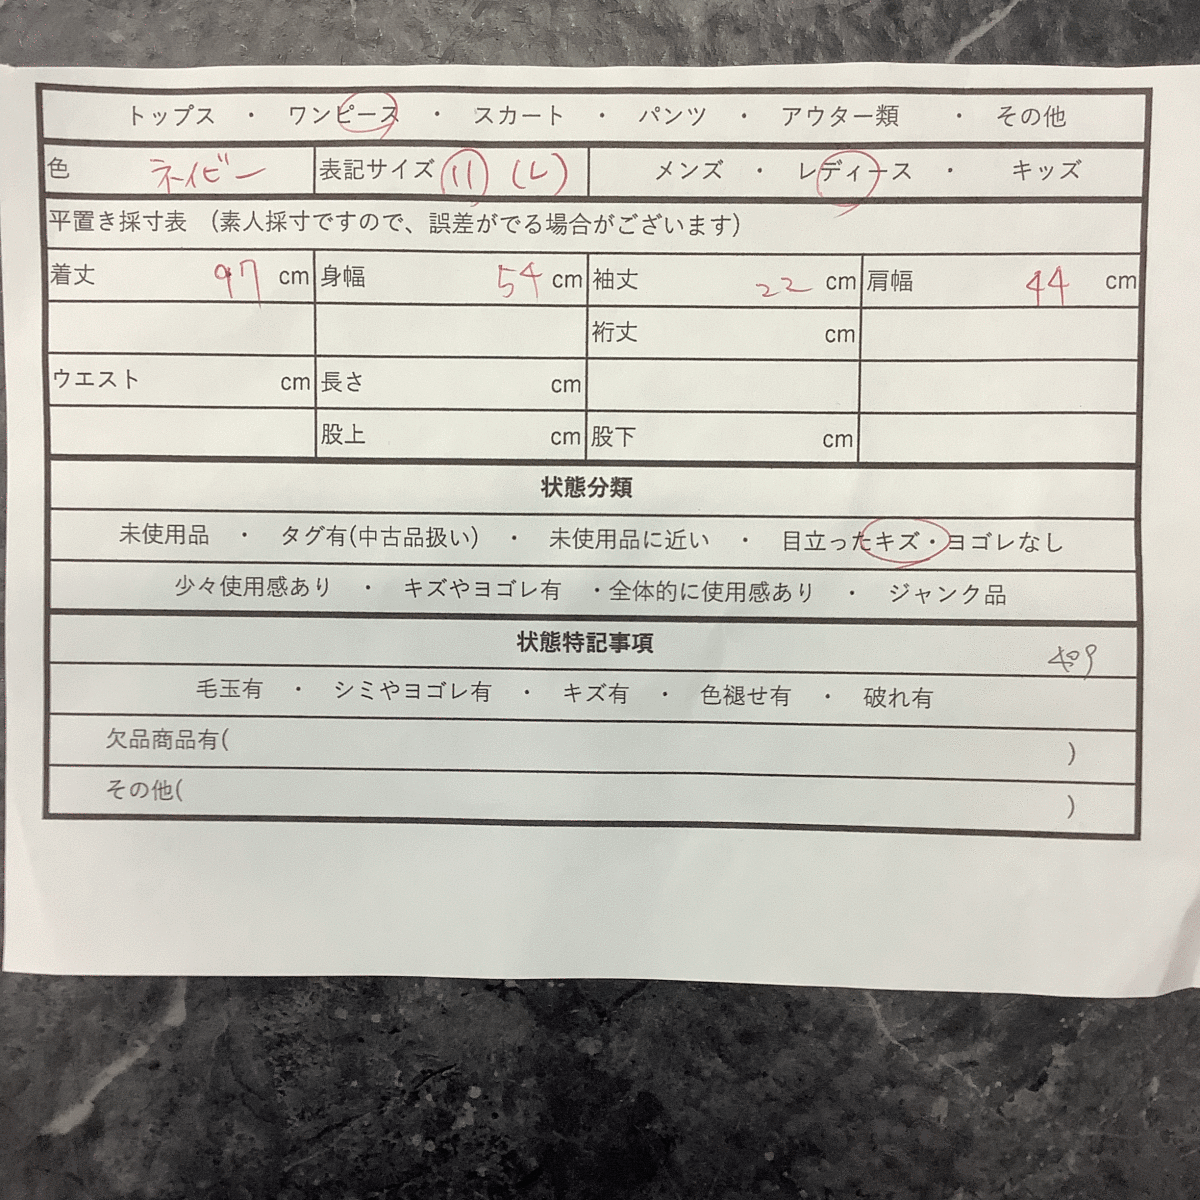 トップス ・ ワンピース ・ スカート ・ パンツ ・ アウター類 ・ その他
色 ネイビー 表記サイズ 11 (L) メンズ ・ レディース ・ キッズ
平置き採寸表 (素人採寸ですので、誤差がでる場合がございます)
着丈 97 cm 身幅 54 cm 袖丈 22 cm 肩幅 44 cm
裄丈 cm
ウエスト cm 長さ cm
股上 cm 股下 cm
状態分類
未使用品 ・ タグ有(中古品扱い) ・ 未使用品に近い ・ 目立ったキズ・ヨゴレなし
少々使用感あり ・ キズやヨゴレ有 ・全体的に使用感あり ・ ジャンク品
状態特記事項
毛玉有 ・ シミやヨゴレ有 ・ キズ有 ・ 色褪せ有 ・ 破れ有
欠品商品有( )
その他( )